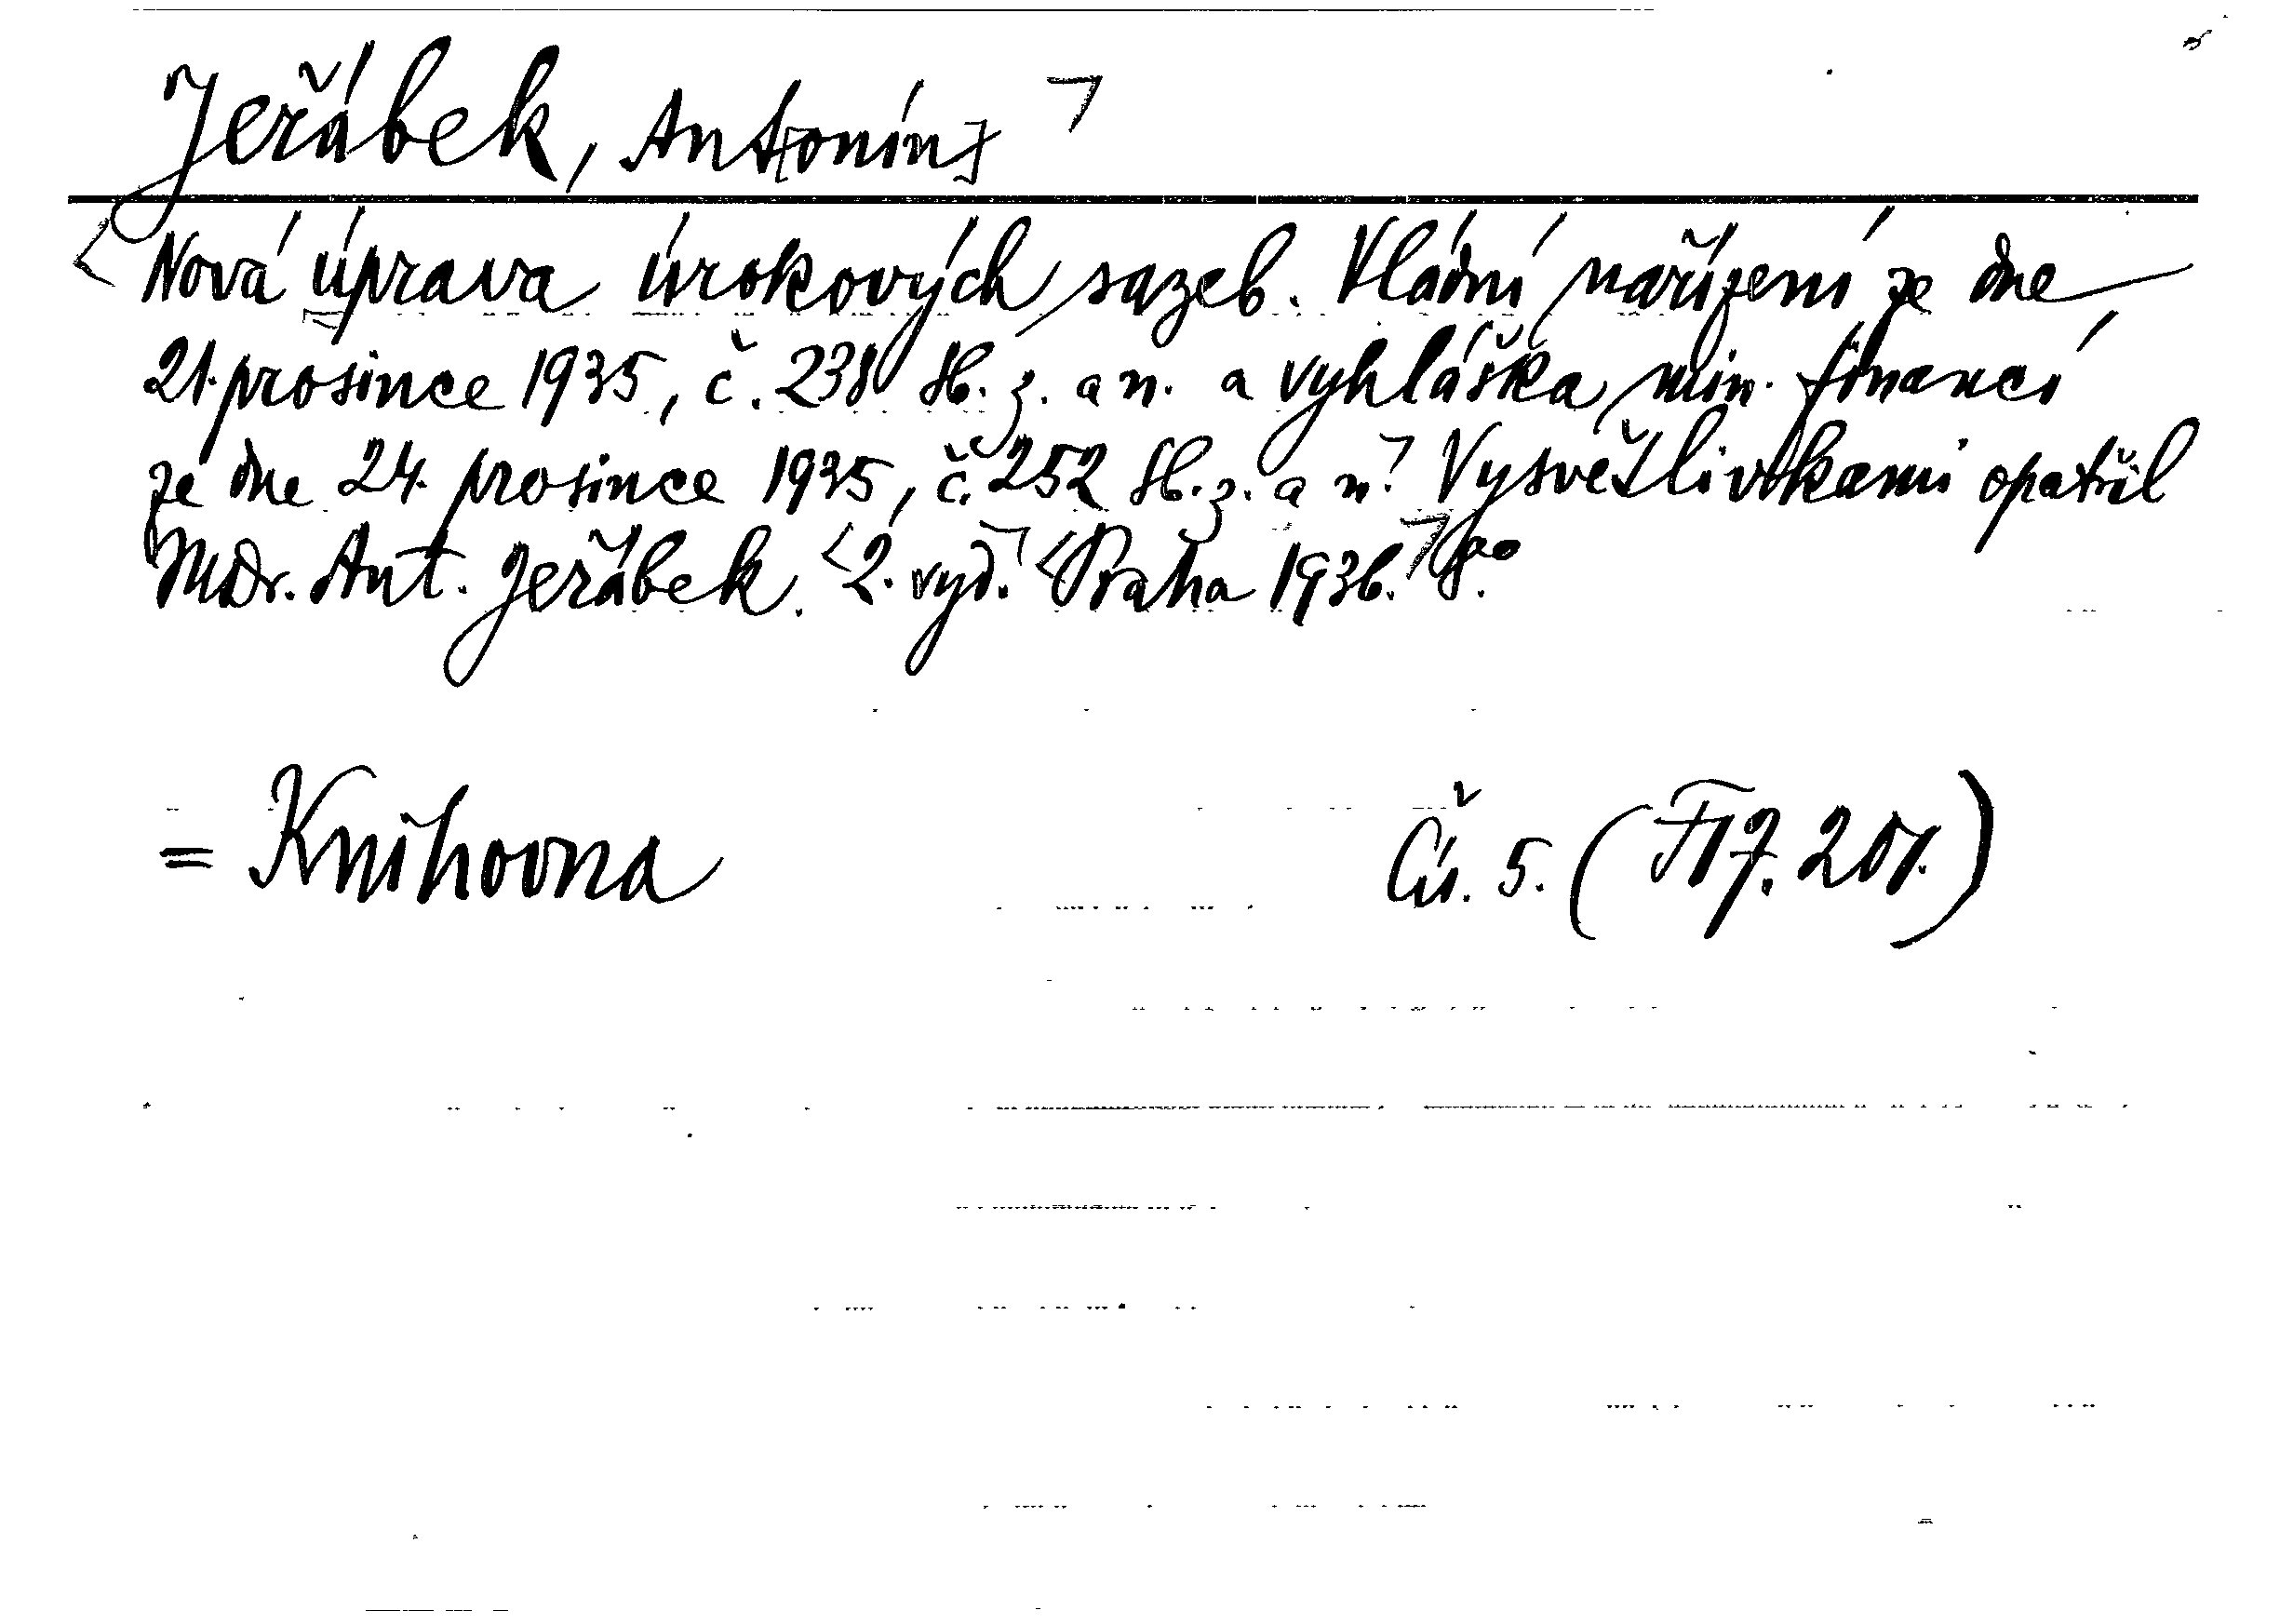 Jeřábek, Ant[onín]
Nová úprava úrokových sazeb. Vládní nařízení ze dne
21. prosince 1935, č. 238 Sb. z. a n. a vyhláška min. financí
ze dne 24. prosince 1935, č. 252 Sb. z. a n. Vysvětlivkami opatřil
JUDr. Ant. Jeřábek. 2. vyd. Praha 1936. 8°.
= Knihovna Čís. 5. (